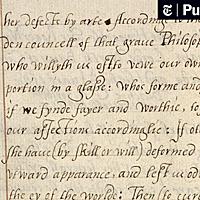 Pu
her defects by arte. Accordinge to the
den councell of that graue Philosop
who willyth us ofto vewe our own
portion in a glasse: Who forme and
if we fynde fayer and worthie, to
our affections accordinglie: If
she haue (by skill or will) deformed
utward apperance, and left
the ey of the worlde: Then to